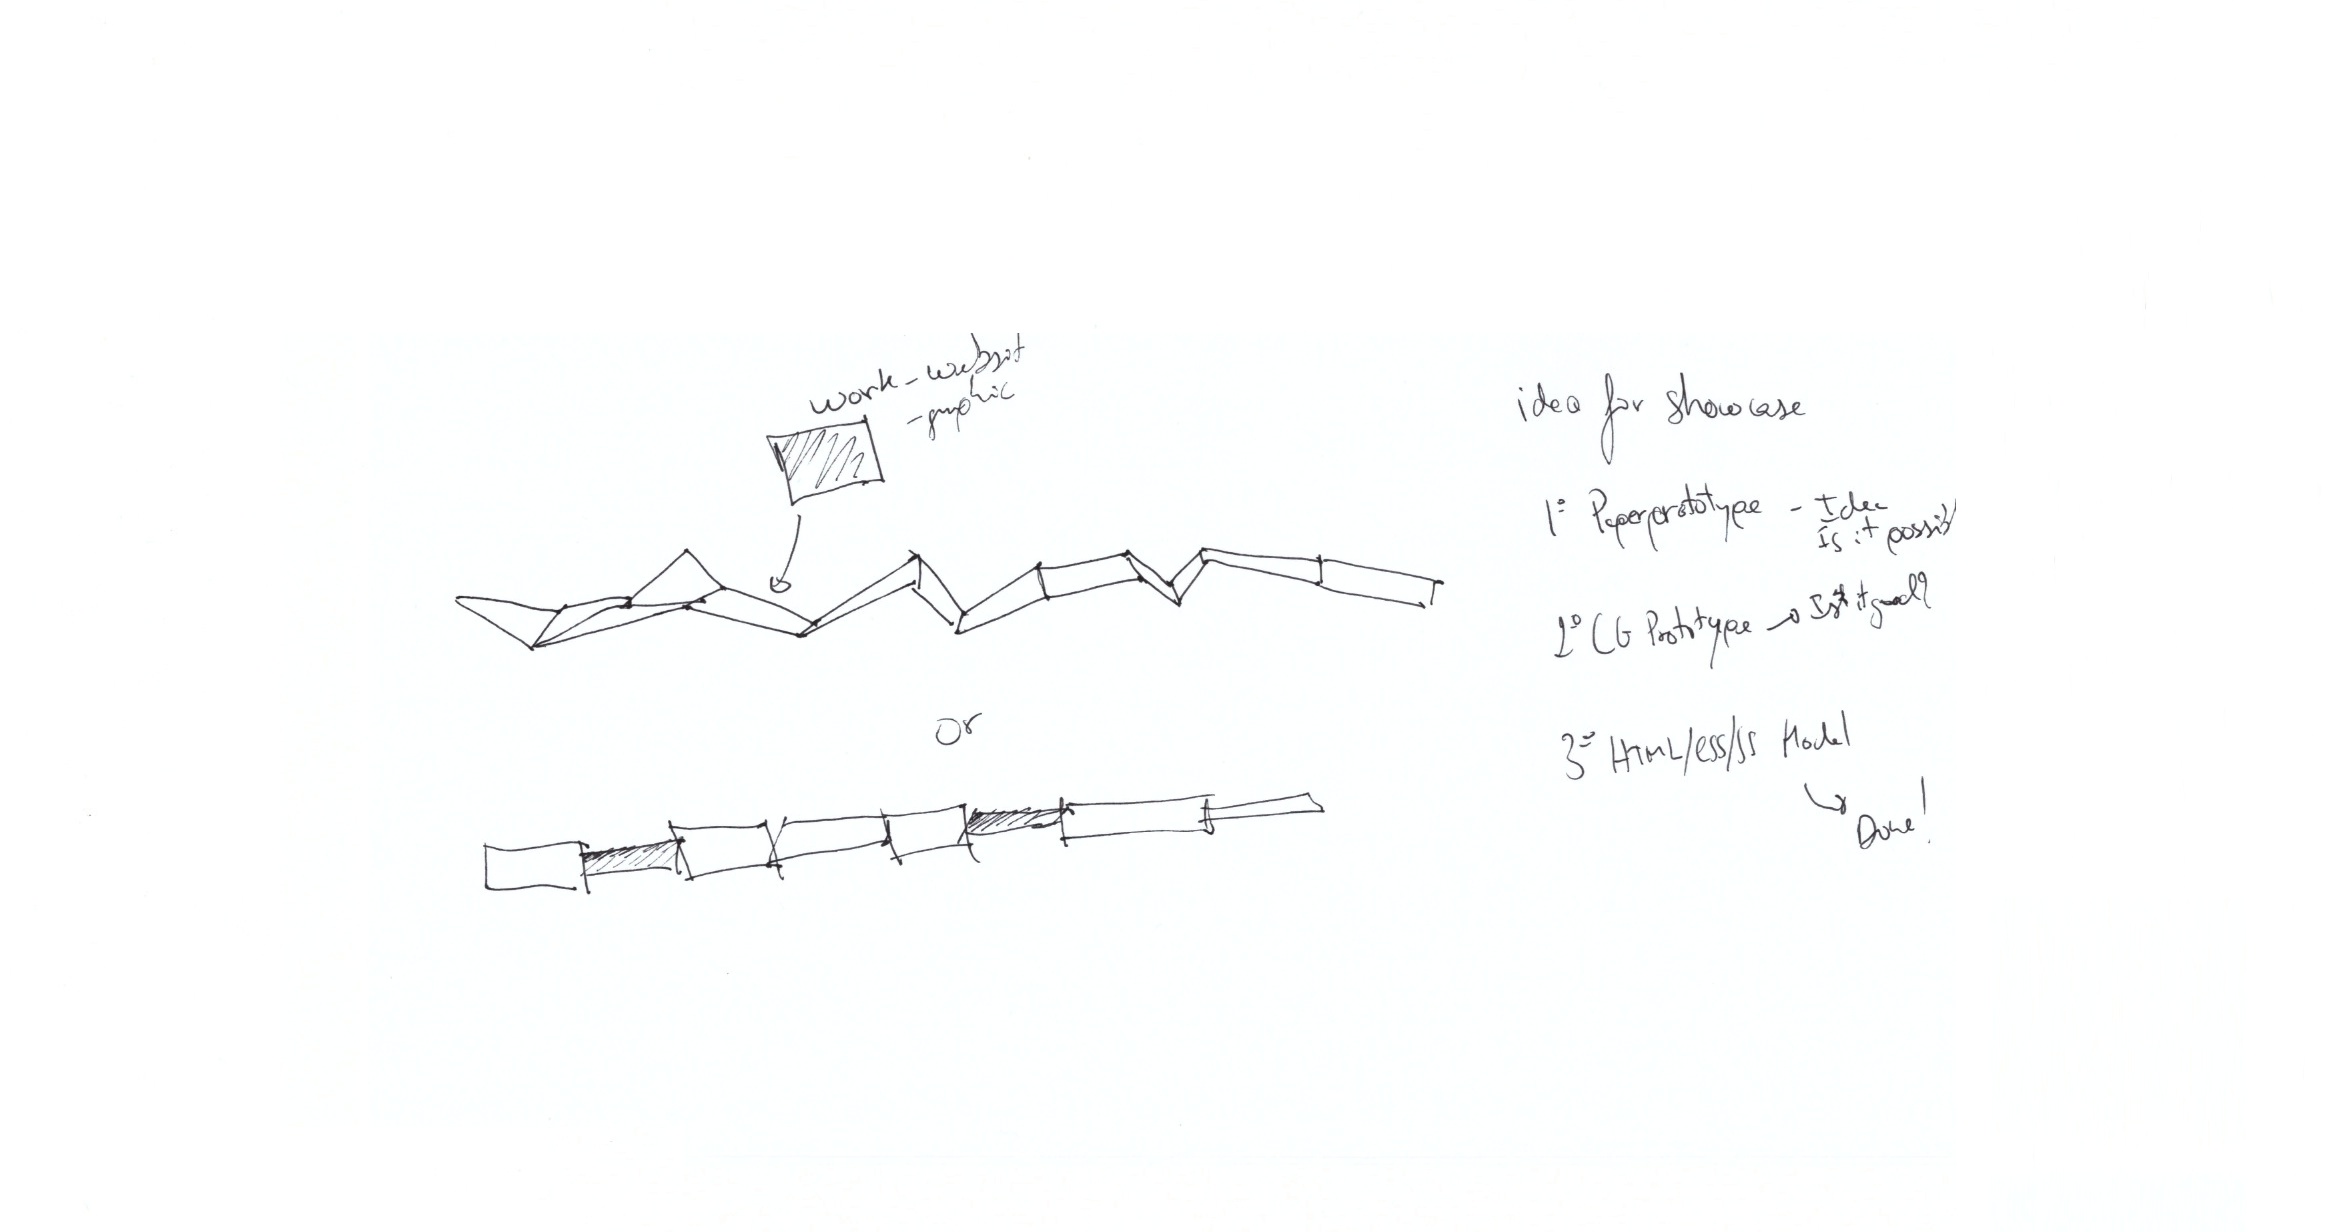 work - websit
- graphic
Or
idea for showcase
1º Paperprototype - Idea
Is it possib
2º CG Prototype → Is it good?
3º HTML/CSS/JS Model
Done!